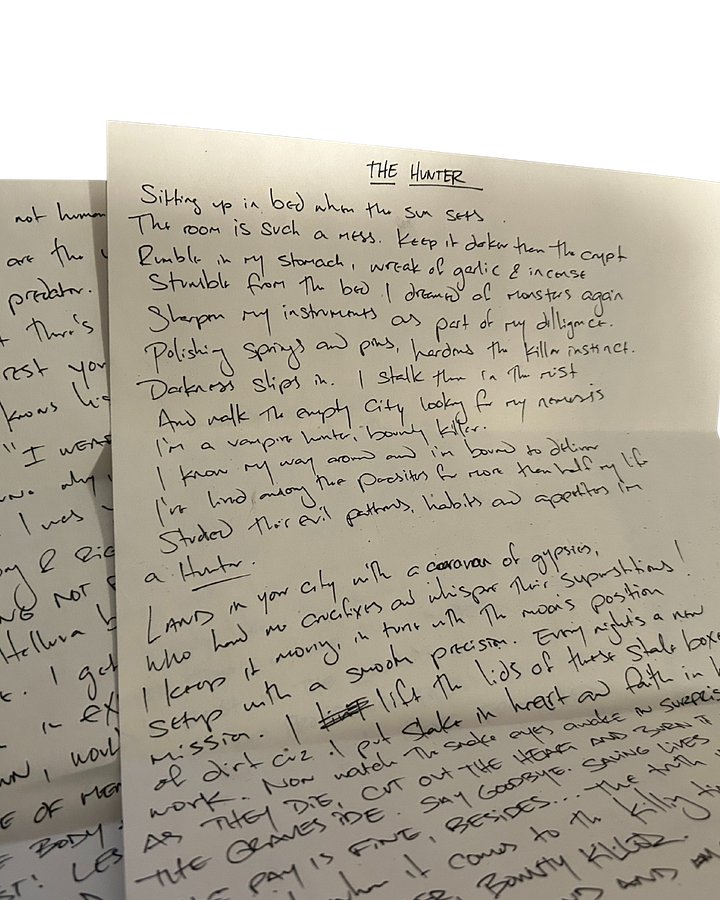 THE HUNTER
Sitting up in bed when the sun sets.
The room is such a mess. Keep it darker than the crypt
Rumble in my stomach, wreak of garlic & incense
Stumble from the bed I dreamed of monsters again
Sharpen my instruments as part of my dilligence.
Polishing springs and pins, hardens the killer instinct.
Darkness slips in. I stalk them in the mist
And walk the empty city looking for my nemesis
I'm a vampire hunter, bounty killer.
I know my way around and i'm bound to deliver
I've lived among the parasites for more than half my life
Studied their evil patterns, habits and appetites i'm
a Hunter.
LAND in your city with a caravan of gypsies,
who hand me crucifixes and whisper their superstitions!
I keep it moving, in tune with the moon's position
Setup with a smooth precision. Every night's a new
mission. I lift the lids of these stale boxes
of dirt cuz I put stake in heart and faith in
work. Now watch the snake eyes awake in surprise
AS THEY DIE, CUT OUT THE HEART AND BURN IT
THE GRAVESIDE. SAY GOODBYE. SAVING LIVES
PAY IS FINE, BESIDES... THE truth
when it comes to the killing
BOUNTY KILLER.
AND
not human
are the
predator.
there's
rest your
knows
"I
I was
NOT
Helluva
. I get
in
E OF
BODY